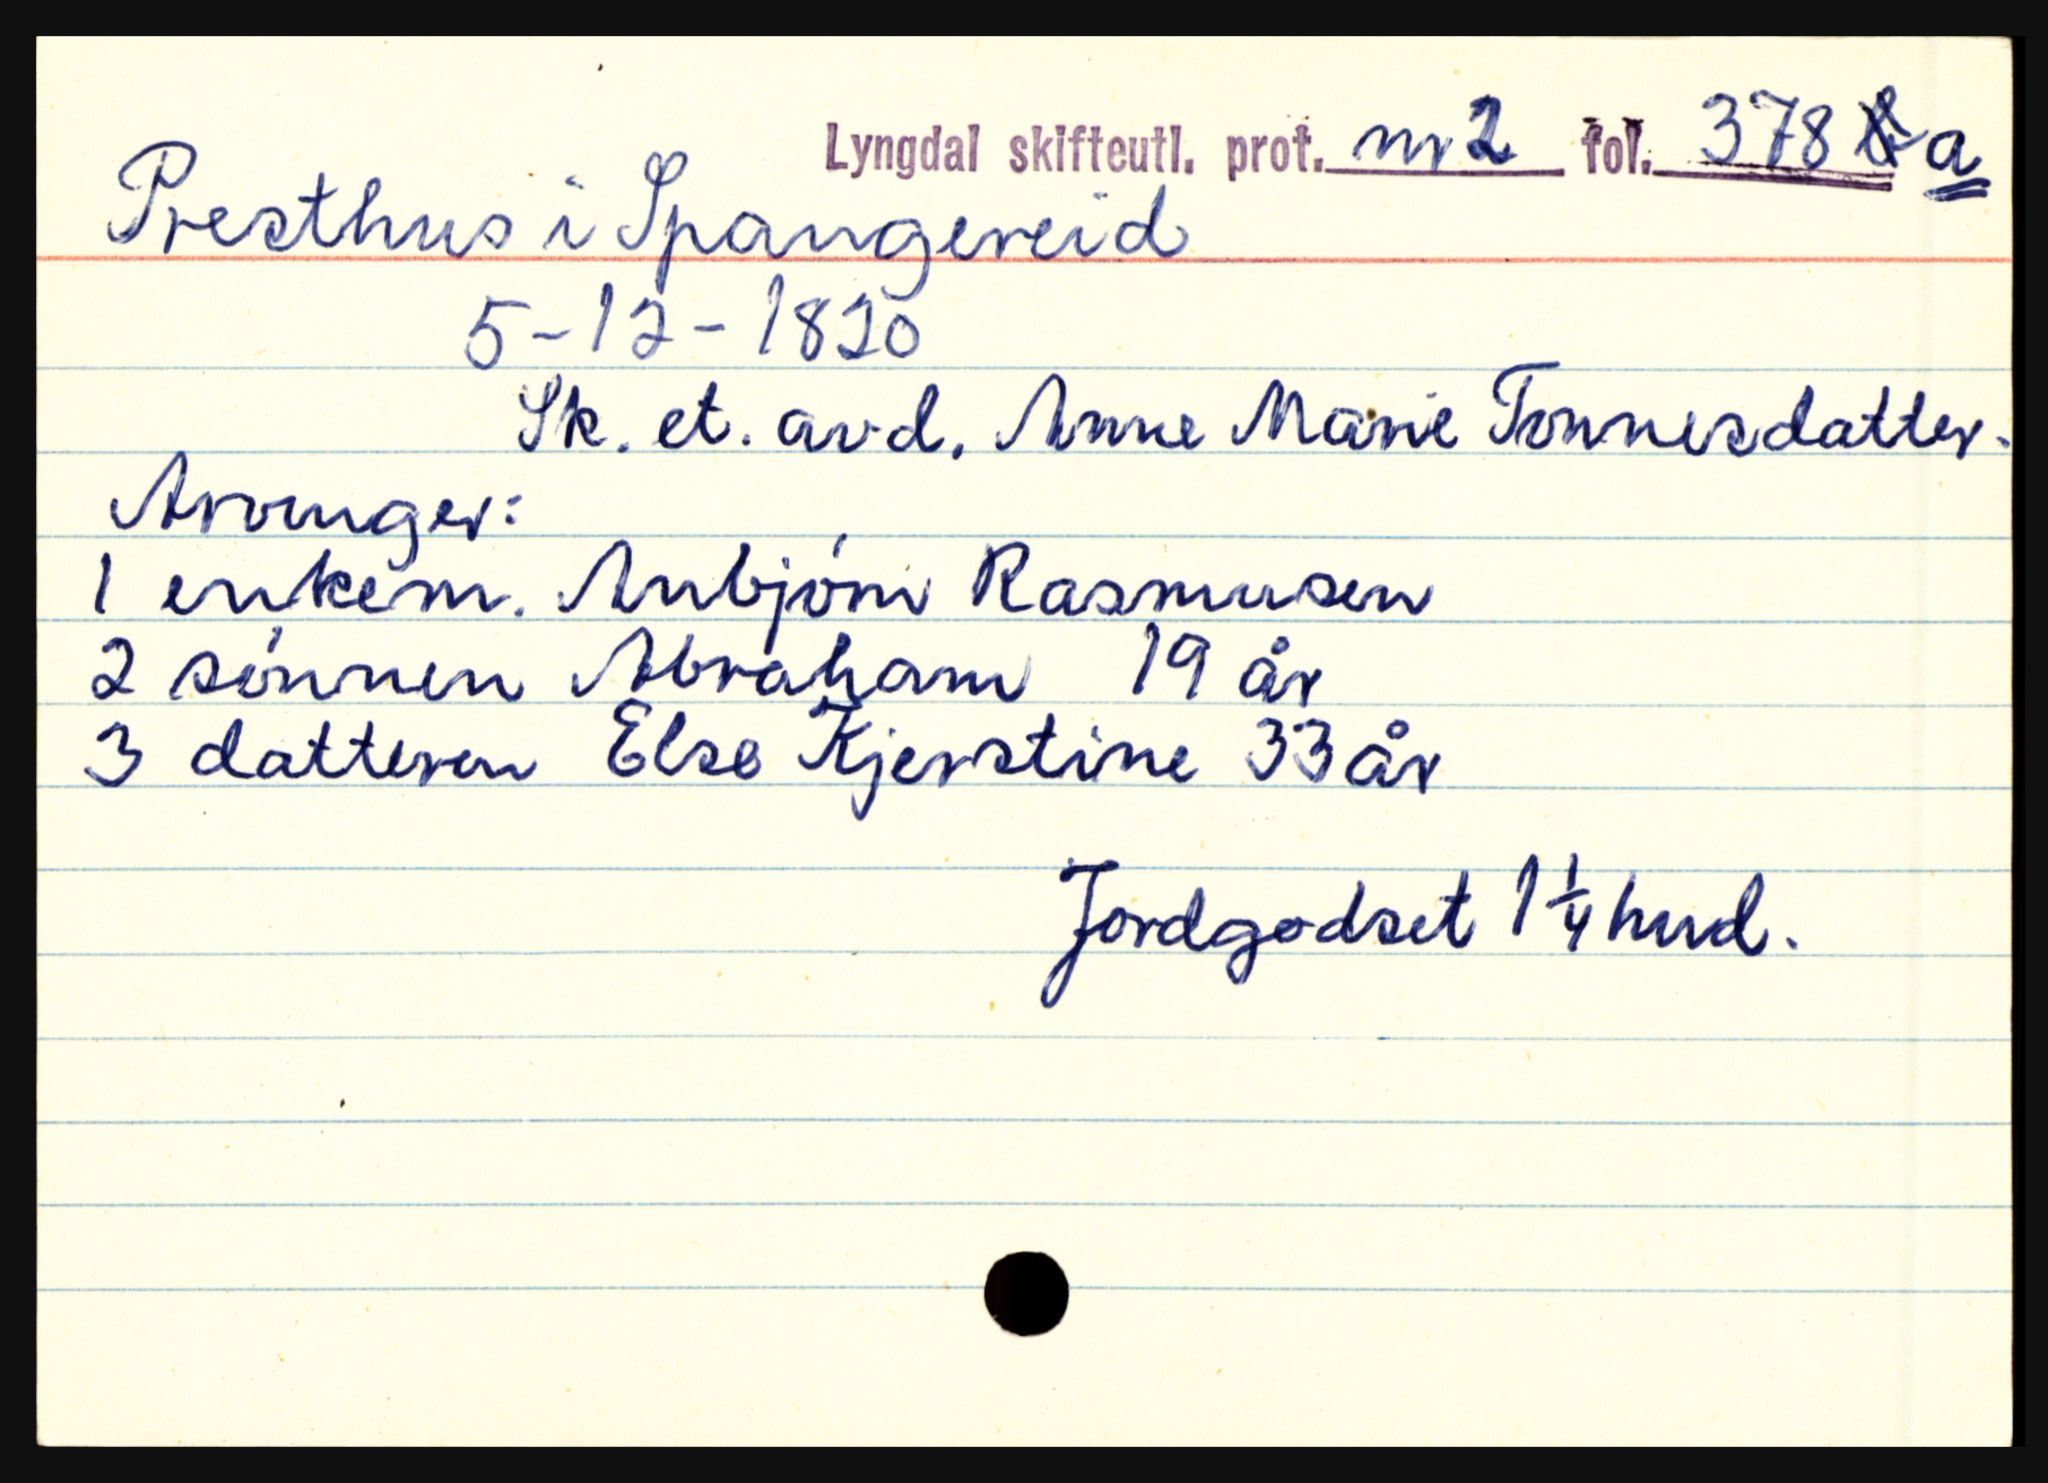 Lyngdal skifteutl. prot. nr 2 fol. 378 a
Presthus i Spangereid
5-12-1820
Sk. et. avd. Anne Marie Tonnesdatter.
Arvinger:
1 enkem. Anbjørn Rasmusen
2 sønnen Abraham 19 år
3 datteren Else Kjerstine 33 år
Jordgodset 1 1/4 hud.